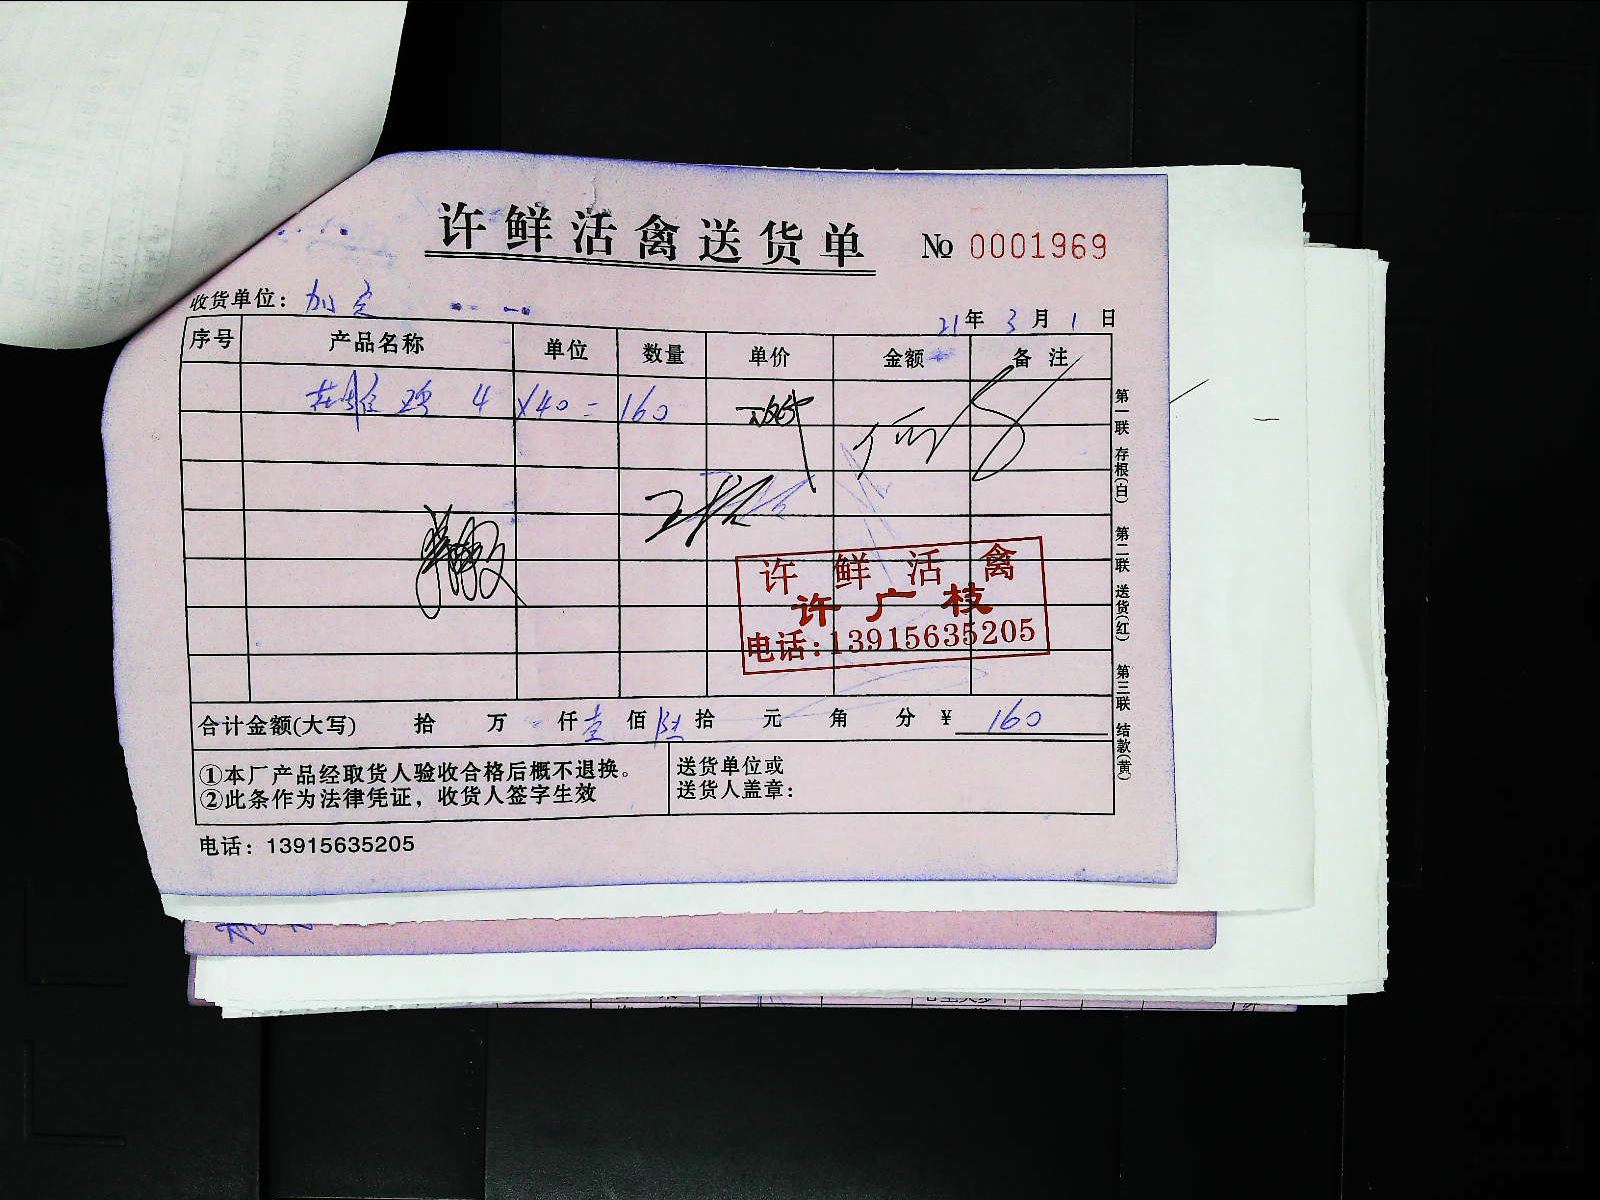 许鲜活禽送货单 № 0001969
收货单位：加定
21年 3月 1日
序号 产品名称 单位 数量 单价 金额 备注
鸡 4 ×40=160
许鲜活禽
许广枝
电话：13915635205
合计金额(大写) 拾 万 仟壹佰陆拾 元 角 分 ¥ 160
①本厂产品经取货人验收合格后概不退换。
②此条作为法律凭证，收货人签字生效
送货单位或
送货人盖章：
电话：13915635205
第一联 存根(白) 第二联 送货(红) 第三联 结款(黄)